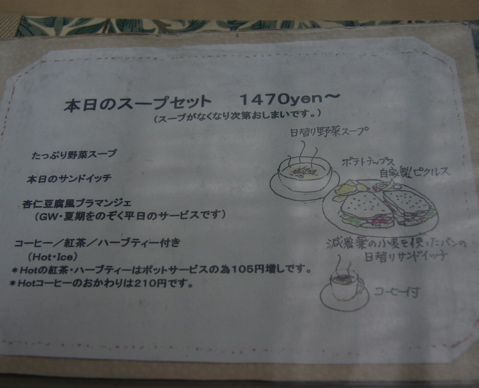 本日のスープセット　1470yen～
（スープがなくなり次第おしまいです。）
日替り野菜スープ
たっぷり野菜スープ
ポテトチップス
自家製ピクルス
本日のサンドイッチ
杏仁豆腐風ブラマンジェ
（GW・夏期をのぞく平日のサービスです）
減農薬の小麦を使ったパンの
日替りサンドイッチ
コーヒー／紅茶／ハーブティー付き
（Hot・Ice）
＊Hotの紅茶・ハーブティーはポットサービスの為105円増しです。
＊Hotコーヒーのおかわりは210円です。
コーヒー付